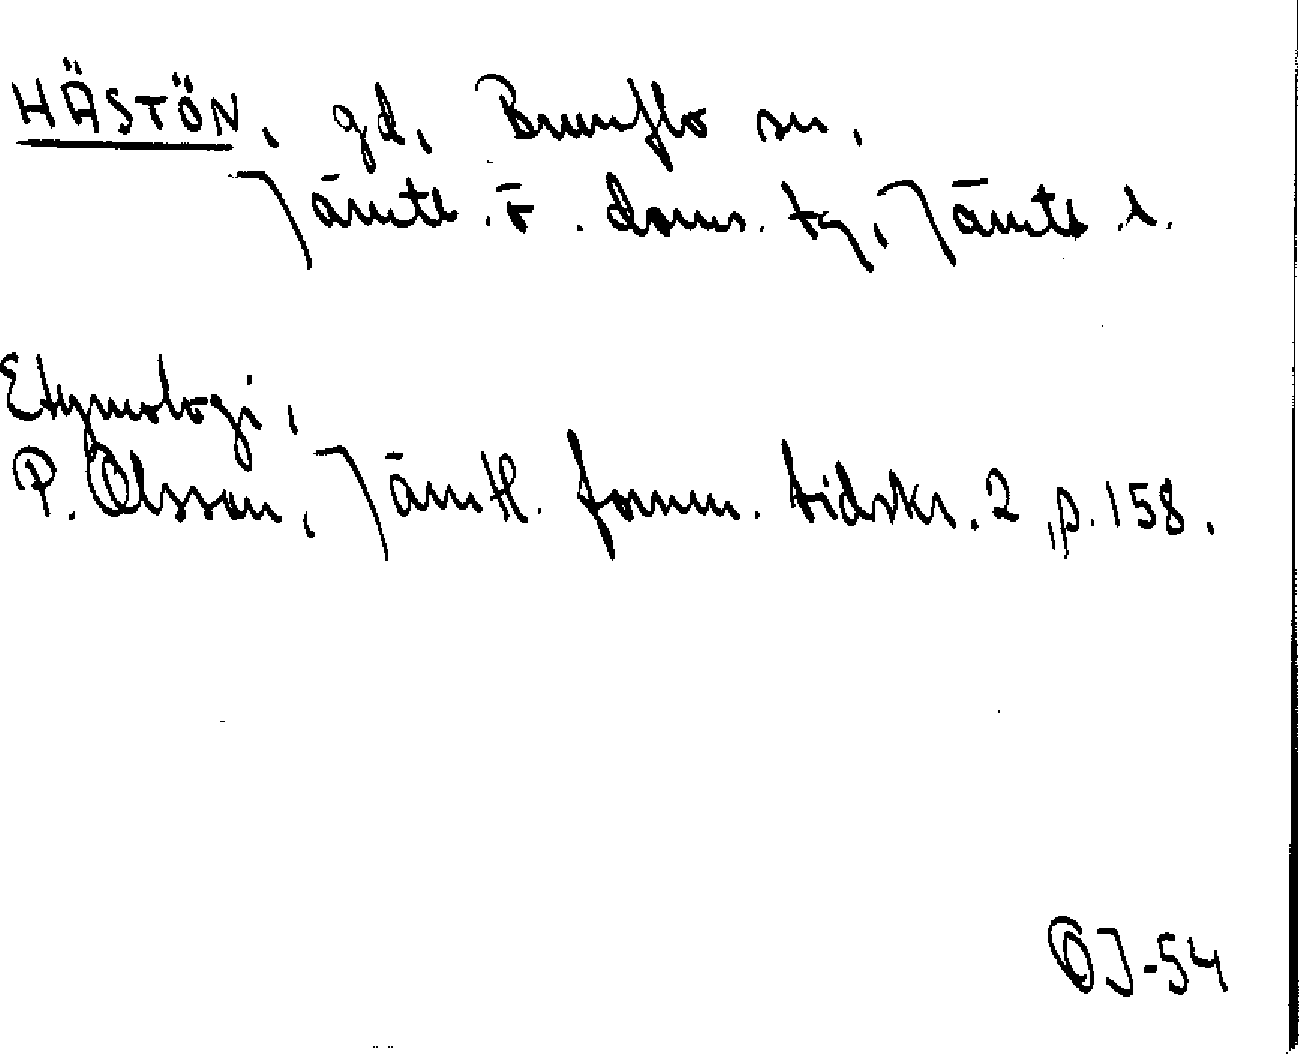 HÄSTÖN, gd, Brunflo sn,
Jämtl. ö. doms. tg, Jämtl. l.
Etymologi,
P. Olsson, Jämtl. fornm. tidskr. 2, p. 158.
OJ-54